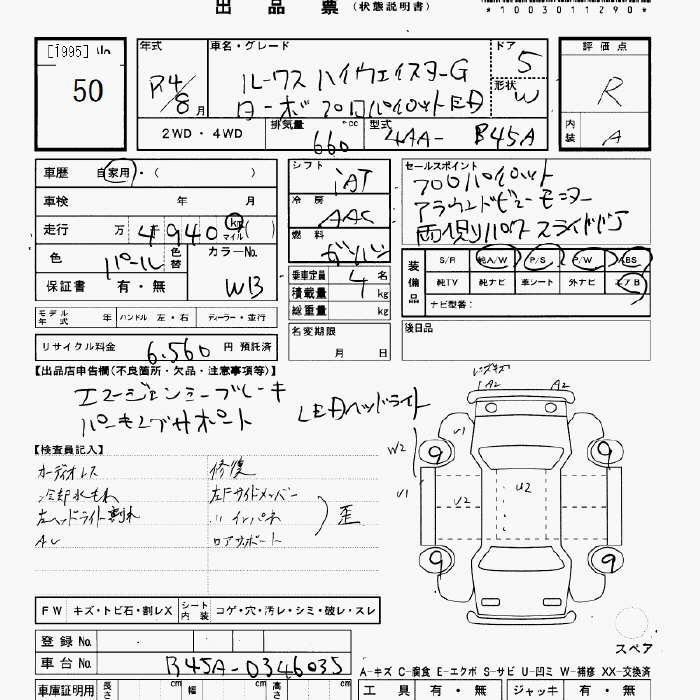 出品票 (状態説明書)
*1003011290*
[1995] Un
50
年式
R4/8月
車名・グレード
ルークス ハイウェイスターG
ターボ プロパイロットED
ドア
5
形状
W
2WD・4WD
排気量 660 cc
型式 4AA- B45A
評価点
R
内装
A
車歴 自家用・( )
車検 年 月
走行 万 4千940 km マイル ( )
色 パール 色替
カラーNo. WB
保証書 有・無
シフト iAT
冷房 AAC
燃料 ガソリン
乗車定員 4 名
積載量 kg
総重量 kg
名変期限
月 日
セールスポイント
プロパイロット
アラウンドビューモニター
両側パワースライドドア
装備品
S/R 純A/W P/S P/W ABS
純TV 純ナビ 車シート 外ナビ エアB
ナビ型番:
後日品
モデル年式 年 ハンドル 左・右 ディーラー・並行
リサイクル料金 6,560 円 預託済
【出品店申告欄(不良箇所・欠品・注意事項等)】
エマージェンシーブレーキ
パーキングサポート
LEDヘッドライト
【検査員記入】
オーディオレス
冷却水もれ
左ヘッドライト割れ
AU
修復
左Fサイドメンバー
〃インパネ
ロアサポート
歪
A2 A2
V1
W2
V1 V2 U2
9 9
9 9
スペア
FW キズ・トビ石・割レX シート内装 コゲ・穴・汚レ・シミ・破レ・スレ
登録No.
車台No. B45A-0346035
A-キズ C-腐食 E-エクボ S-サビ U-凹ミ W-補修 XX-交換済
車庫証明用 長さ cm 幅 cm 高さ cm
工具 有・無 ジャッキ 有・無